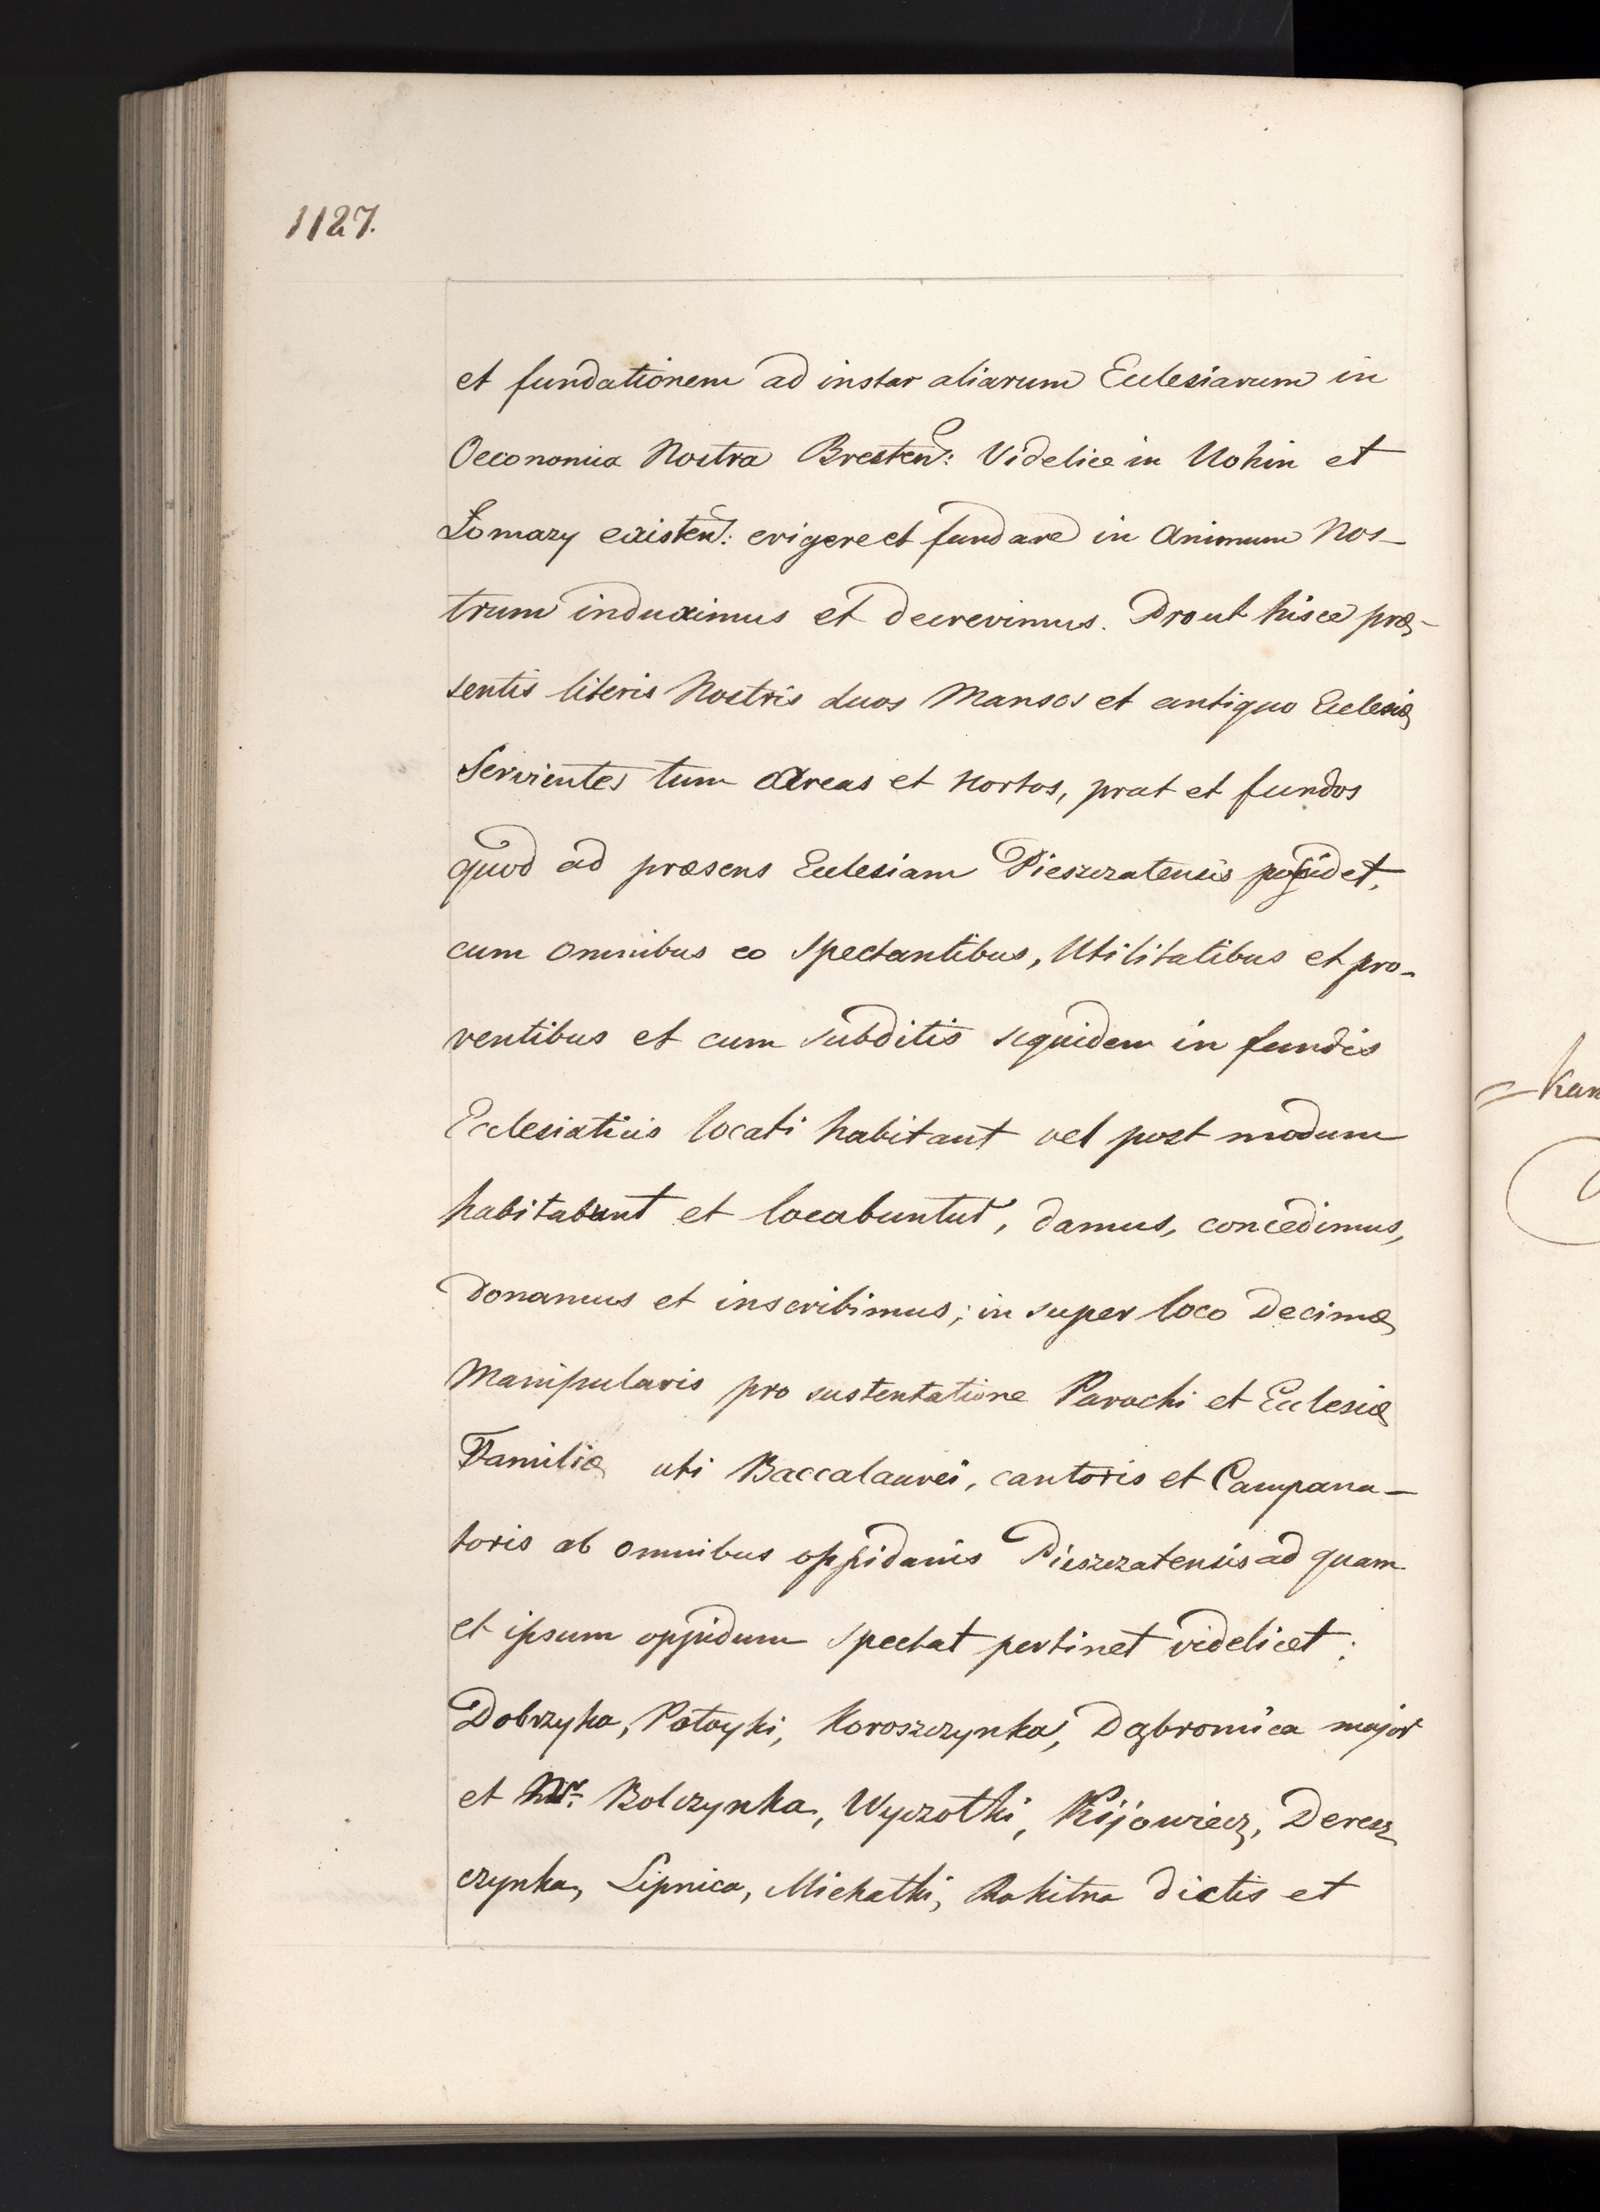 1127.
et fundationem ad instar aliarum Eclesiarum in
Oeconomia Nostra Bresten: Videlice in Wohin et
Łomazy existen: erigere et fundare in Animum Nos-
trum induximus et decrevimus. Prout hisce præ-
sentis literis Nostris duos Mansos et antiquo Eclesiæ
Servientes tum Areas et hortos, prat et fundos
quod ad præsens Eclesiam Pieszczatensis possidet,
cum omnibus eo spectantibus, Utilitatibus et pro-
ventibus et cum subditis siquidem in fundis
Eclesiaticis locati habitant vel post modum
habitabunt et locabuntur, damus, concedimus,
donamus et inscribimus; in super loco Decimæ
Manipularis pro sustentatione Parochi et Eclesiæ
Familiæ uti Baccalaurei, cantoris et Campana-
toris ab omnibus oppidanis Pieszczatensis ad quam
et ipsum oppidum spectat pertinet videlicet:
Dobrzyka, Połoyki, Koroszczynka, Dąbrowica major
et Bolczynka, Wyczołki, Kijowiecz, Deresz
czynka, Lipnica, Michałki, Rokitna dictis et